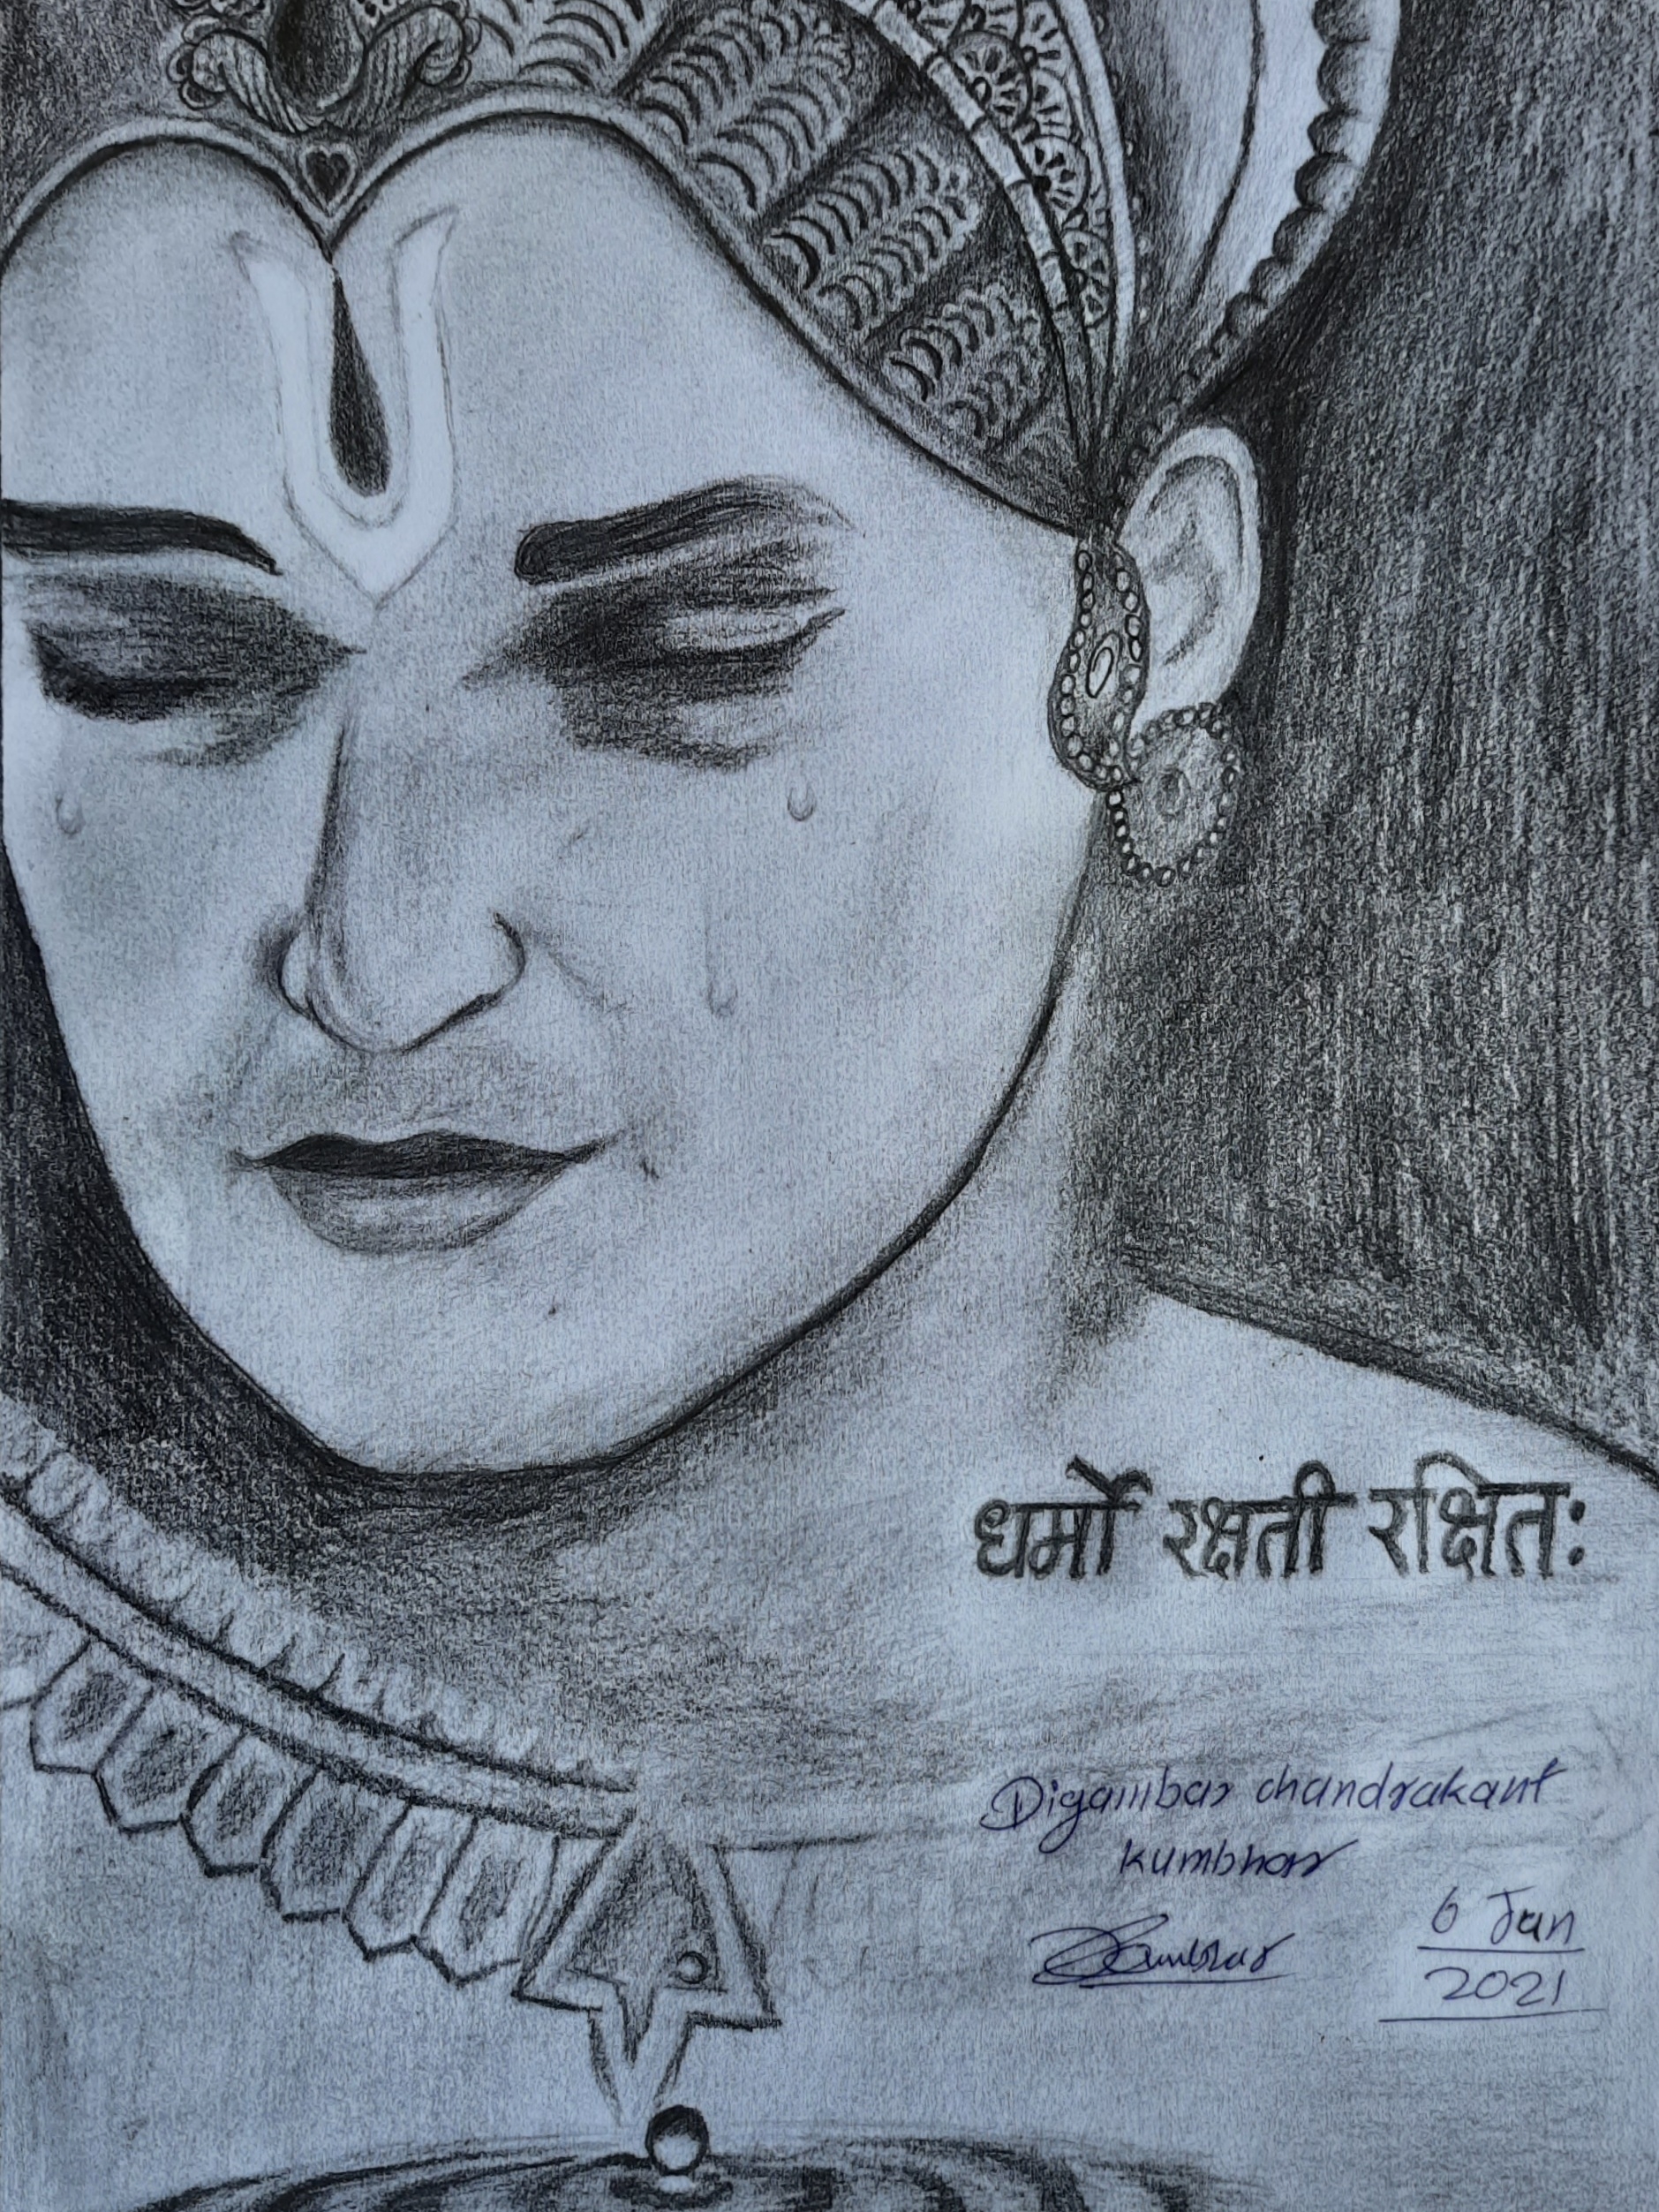 धर्मो रक्षती रक्षितः
Digambar chandrakant
kumbhar
6 Jan
2021